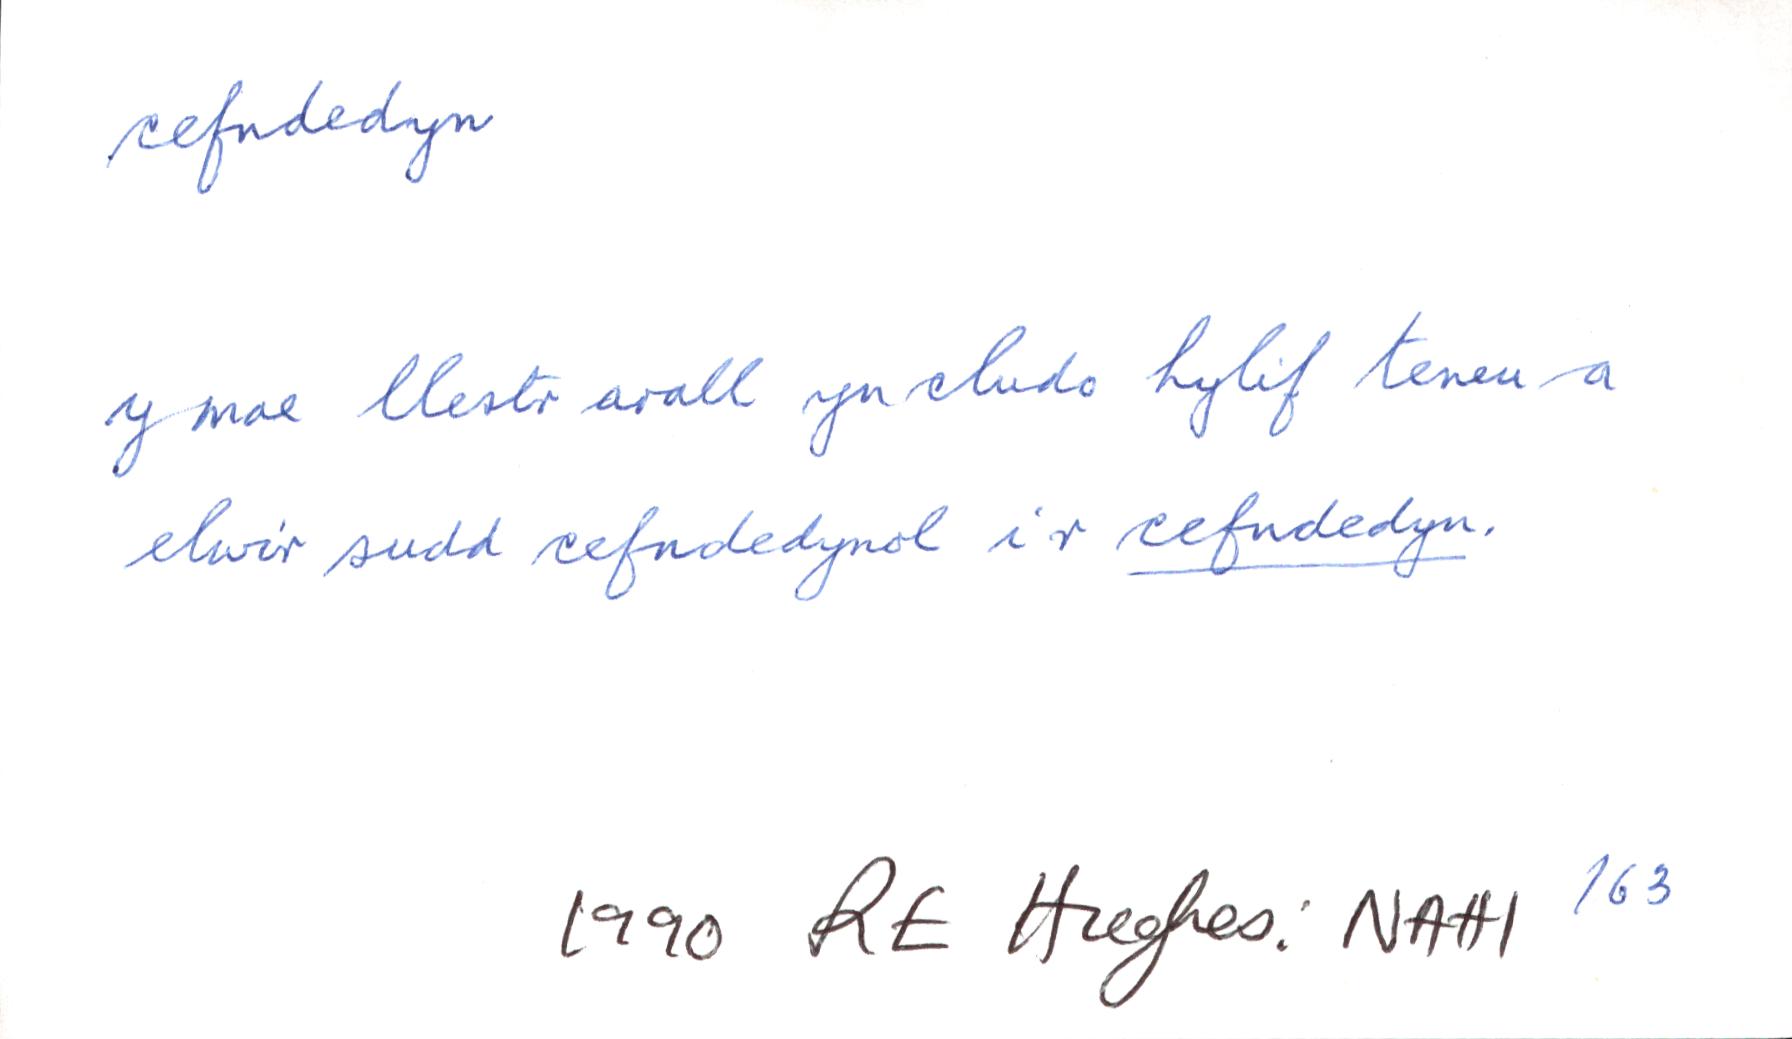 cefndedyn
y mae llestr arall yn cludo hylif teneu a
elwir sudd cefndedynol i'r cefndedyn.
1990 RE Hughes: NAHI 163